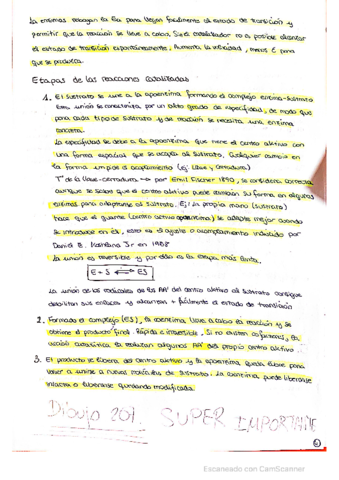 La enzimas consiguen la Ea para llegar facilmente al estado de transición y
permitir que la reacción se lleve a cabo. Si el catalizador no es posible alcanzar
el estado de transición espontáneamente. Aumenta la velocidad, menos E para
que se produzca.
Etapas de las reacciones catalizadas
1. El sustrato se une a la apoenzima formando el complejo enzima-sustrato
Esta unión se caracteriza por un alto grado de especificidad, de modo que
para cada tipo de sustrato y de reacción se necesita una enzima
concreta.
La especificidad se debe a la apoenzima que tiene el centro activo con
una forma espacial que se acopla al sustrato. Cualquier cambio en
la forma impide el acoplamiento (ej: llave, cerradura)
Tª de la llave-cerradura → por Emil Fischer 1890, se considera correcta
aunque se sabe que el centro activo puede cambiar su forma en algunas
enzimas para adaptarse al sustrato. Ej: la propia mano (sustrato)
hace que el guante (centro activo apoenzima) se adapte mejor cuando
se introduce en él, esto es el ajuste o acoplamiento inducido por
David E. Koshland Jr en 1958
La unión es reversible y por ello es la etapa más lenta.
E + S ⇌ ES
La unión de los radicales de los AA del centro activo al sustrato consigue
debilitar sus enlaces y alcanzan + fácilmente el estado de transición
2. Formado el complejo (ES), la coenzima lleva a cabo la reacción y se
obtiene el producto final. Rápida e irreversible. Si no existen cofactores, la
acción catalítica la realizan algunos AA del propio centro activo
3. El producto se libera del centro activo y la apoenzima queda libre para
volver a unirse a nuevas moléculas de sustrato. La coenzima puede liberarse
intacta o liberarse quedando modificada
Dibujo 201. SUPER IMPORTANTE
Escaneado con CamScanner